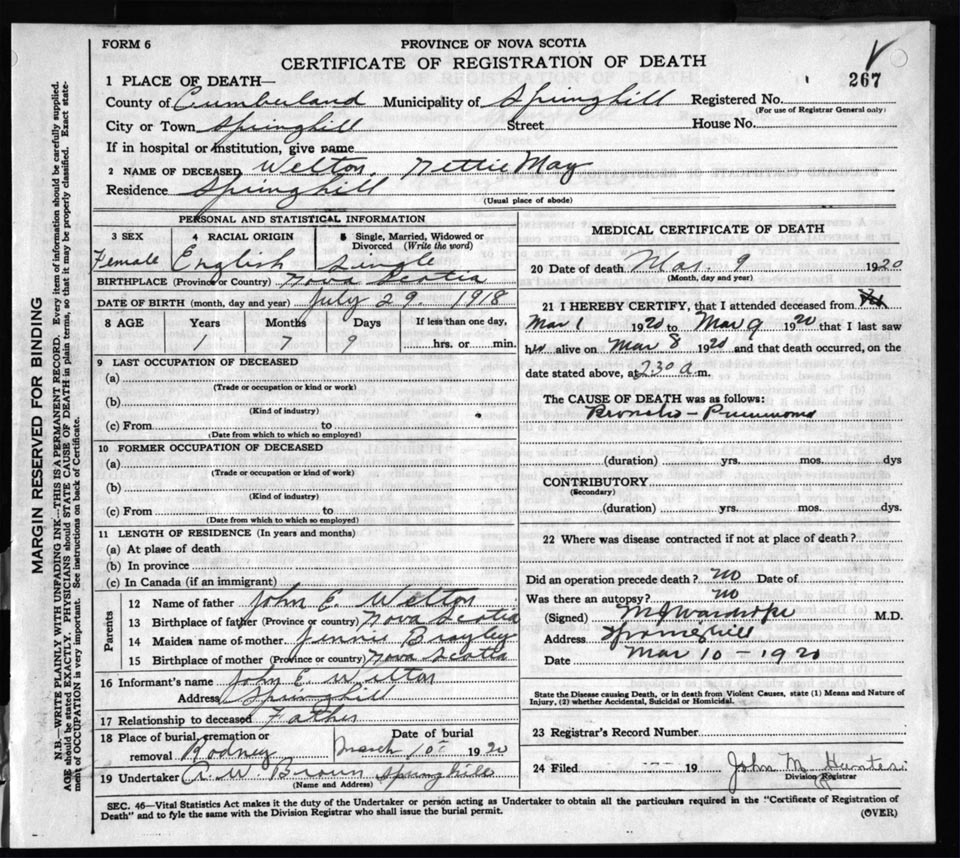 FORM 6
PROVINCE OF NOVA SCOTIA
CERTIFICATE OF REGISTRATION OF DEATH
267
1 PLACE OF DEATH—
County of Cumberland Municipality of Springhill Registered No.
(For use of Registrar General only)
City or Town Springhill Street House No.
If in hospital or institution, give name
2 NAME OF DECEASED Welton, Nettie May
Residence Springhill
(Usual place of abode)
PERSONAL AND STATISTICAL INFORMATION
3 SEX 4 RACIAL ORIGIN 5 Single, Married, Widowed or Divorced (Write the word)
Female English Single
BIRTHPLACE (Province or Country) Nova Scotia
DATE OF BIRTH (month, day and year) July 29. 1918
8 AGE Years Months Days If less than one day,
1 7 9 hrs. or min.
9 LAST OCCUPATION OF DECEASED
(a)
(Trade or occupation or kind or work)
(b)
(Kind of industry)
(c) From to
(Date from which to which so employed)
10 FORMER OCCUPATION OF DECEASED
(a)
(Trade or occupation or kind of work)
(b)
(Kind of industry)
(c) From to
(Date from which to which so employed)
11 LENGTH OF RESIDENCE (In years and months)
(a) At place of death
(b) In province
(c) In Canada (if an immigrant)
Parents
12 Name of father John E. Welton
13 Birthplace of father (Province or country) Nova Scotia
14 Maiden name of mother Jennie Brayley
15 Birthplace of mother (Province or country) Nova Scotia
16 Informant's name John E. Welton
Address Springhill
17 Relationship to deceased Father
18 Place of burial, cremation or Date of burial
removal Rodney March 10 1920
19 Undertaker A. W. Brown Springhill
(Name and Address)
MEDICAL CERTIFICATE OF DEATH
20 Date of death Mar. 9 1920
(Month, day and year)
21 I HEREBY CERTIFY, that I attended deceased from
Mar 1 1920 to Mar 9 1920 that I last saw
her alive on Mar 8 1920 and that death occurred, on the
date stated above, at 2 30 a m.
The CAUSE OF DEATH was as follows:
Broncho-Pneumonia
(duration) yrs. mos. dys
CONTRIBUTORY
(Secondary)
(duration) yrs. mos. dys.
22 Where was disease contracted if not at place of death?
Did an operation precede death? no Date of
Was there an autopsy? no
(Signed) M.D.
Address Springhill
Date Mar 10-1920
State the Disease causing Death, or in death from Violent Causes, state (1) Means and Nature of
Injury, (2) whether Accidental, Suicidal or Homicidal.
23 Registrar's Record Number
24 Filed 19 John M Hunter
Division Registrar
SEC. 46—Vital Statistics Act makes it the duty of the Undertaker or person acting as Undertaker to obtain all the particulars required in the "Certificate of Registration of
Death" and to fyle the same with the Division Registrar who shall issue the burial permit.
(OVER)
MARGIN RESERVED FOR BINDING
N.B.—WRITE PLAINLY WITH UNFADING INK—THIS IS A PERMANENT RECORD. Every item of information should be carefully supplied.
AGE should be stated EXACTLY. PHYSICIANS should STATE CAUSE OF DEATH in plain terms, so that it may be properly classified. Exact state-
ment of OCCUPATION is very important. See instructions on back of Certificate.